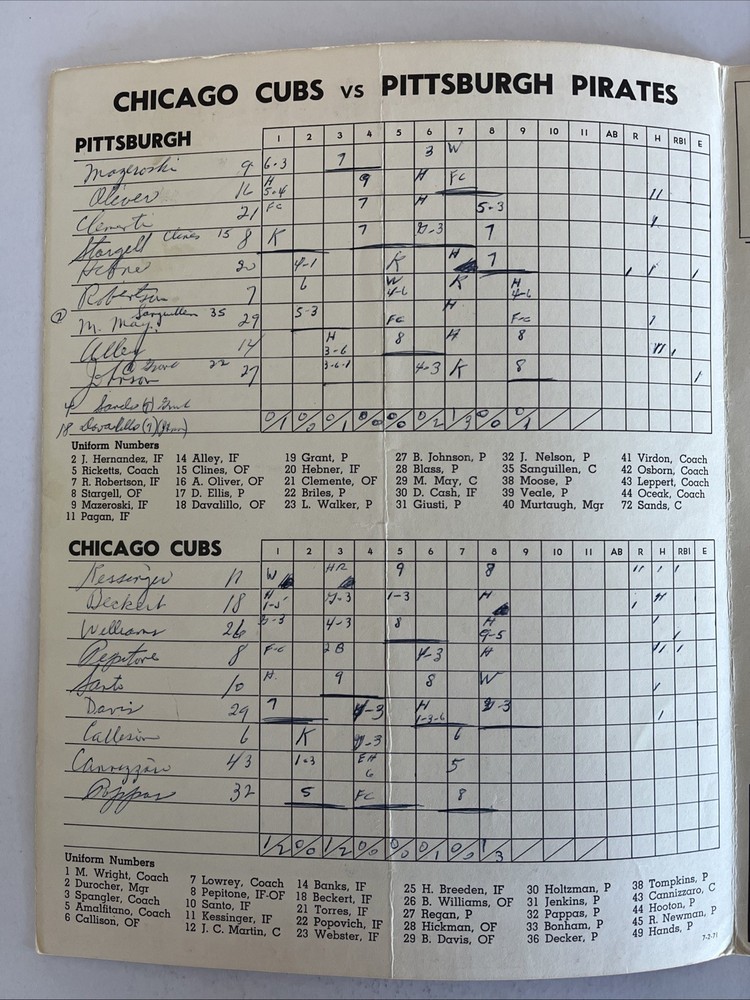 CHICAGO CUBS VS PITTSBURGH PIRATES
PITTSBURGH 1 2 3 4 5 6 7 8 9 10 11 AB R H RBI E
Mazeroski 9 6-3 7 3 W
Oliver 16 H 5-4 9 H FC
Clementi 21 FC 7 H 5-3
Stargell Clines 15 8 K 7 7
Hebne 20 4-1 K H 7
Robertson 7 6 W 4-6 K H 4-6
M. May Sanguillen 35 29 5-3 FC H FC
Alley 14 H 3-6 8 H 8
Johnson 22 27 3-6-1 4-3 K 8
4 Sands
18 Davalillo
Uniform Numbers
2 J. Hernandez, IF 14 Alley, IF 19 Grant, P 27 B. Johnson, P 32 J. Nelson, P 41 Virdon, Coach
5 Ricketts, Coach 15 Clines, OF 20 Hebner, IF 28 Blass, P 35 Sanguillen, C 42 Osborn, Coach
7 R. Robertson, IF 16 A. Oliver, OF 21 Clemente, OF 29 M. May, C 38 Moose, P 43 Leppert, Coach
8 Stargell, OF 17 D. Ellis, P 22 Briles, P 30 D. Cash, IF 39 Veale, P 44 Oceak, Coach
9 Mazeroski, IF 18 Davalillo, OF 23 L. Walker, P 31 Giusti, P 40 Murtaugh, Mgr 72 Sands, C
11 Pagan, IF
CHICAGO CUBS 1 2 3 4 5 6 7 8 9 10 11 AB R H RBI E
Kessinger 11 W HR 9 8
Beckert 18 H 1-3 H
Williams 26 4-3 8 H 9-5
Pepitone 8 FC 2B 4-3 H
Santo 10 H 9 8 W
Davis 29 7 H 1-3-6
Callison 6 K 6
Cannizzaro 43 1-3 6 5
Pappas 32 5 FC 8
Uniform Numbers
1 M. Wright, Coach 7 Lowrey, Coach 14 Banks, IF 25 H. Breeden, IF 30 Holtzman, P 38 Tompkins, P
2 Durocher, Mgr 8 Pepitone, IF-OF 18 Beckert, IF 26 B. Williams, OF 31 Jenkins, P 43 Cannizzaro, C
3 Spangler, Coach 10 Santo, IF 21 Torres, IF 27 Regan, P 32 Pappas, P 44 Hooton, P
5 Amalfitano, Coach 11 Kessinger, IF 22 Popovich, IF 28 Hickman, OF 33 Bonham, P 45 R. Newman, P
6 Callison, OF 12 J. C. Martin, C 23 Webster, IF 29 B. Davis, OF 36 Decker, P 49 Hands, P
7-2-71